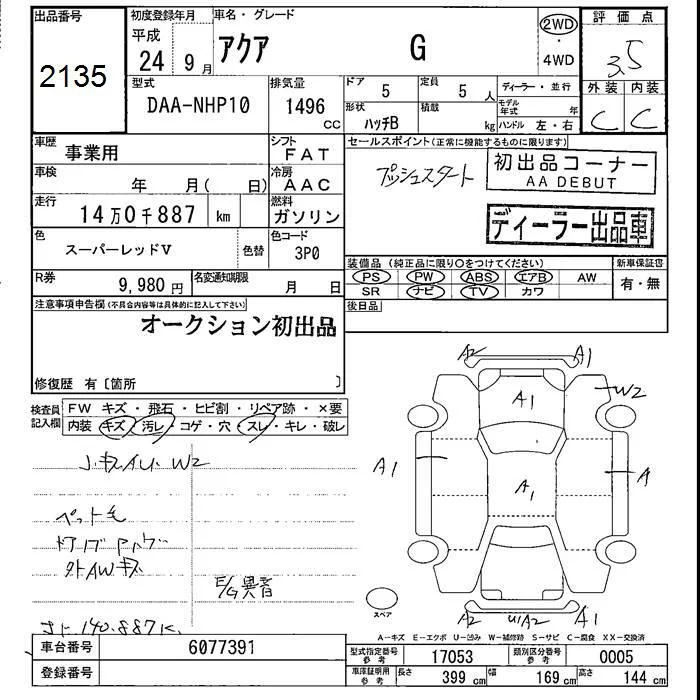 出品番号 初度登録年月 車名・グレード 2WD 評価点
平成
2135 24 9月 アクア G ・ 3.5
4WD
型式 排気量 ドア 5 定員 5人 ディーラー・並行 外装 内装
DAA-NHP10 1496 cc 形状 ハッチB 積載 kg モデル年式 年 C C
ハンドル 左・右
車歴 事業用 シフト FAT セールスポイント(正常に機能するものに限ります)
車検 年 月( 日) 冷房 AAC プッシュスタート 初出品コーナー
AA DEBUT
走行 14万0千887 km 燃料 ガソリン ディーラー出品車
色 スーパーレッドV 色替 色コード 3P0
装備品(純正品に限り○をつけてください) 新車保証書
R券 9,980円 名変通知期限 月 日 PS PW ABS エアB AW 有・無
SR ナビ TV カワ
注意事項申告欄(不具合内容等は具体的に記入して下さい) 後日品
オークション初出品
修復歴 有〔箇所 〕
検査員記入欄 FW キズ・飛石・ヒビ割・リペア跡・×要
内装 キズ・汚レ・コゲ・穴・スレ・キレ・破レ
A2 A1
A1 W2
W2
A1 A
A1
ペット毛
外AWキズ
E/G異音
140.887K.
スペア
A2 U1A2 A1
A-キズ E-エクボ U-凹み W-補修跡 S-サビ C-腐食 XX-交換済
車台番号 6077391 型式指定番号 参考 17053 類別区分番号 参考 0005
登録番号 車庫証明用 参考 長さ 399 cm 幅 169 cm 高さ 144 cm